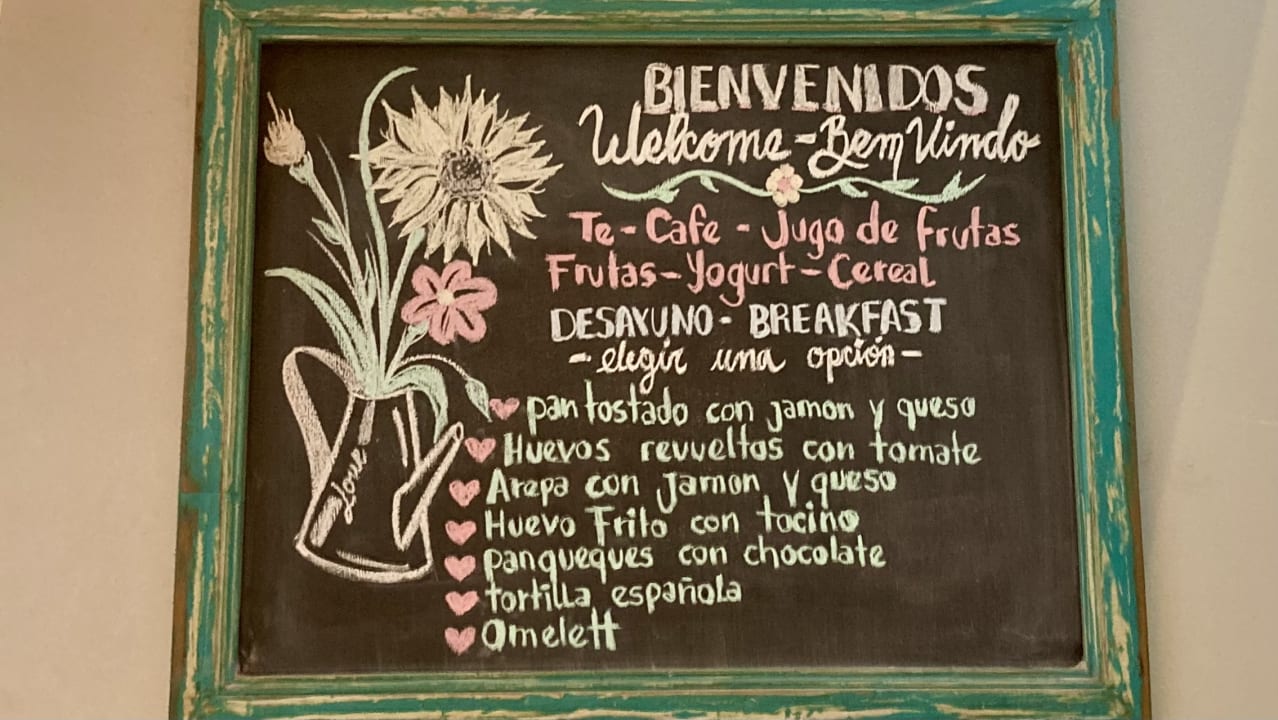 BIENVENIDOS
Welcome - Bem Vindo
Te - Cafe - Jugo de frutas
Frutas - Yogurt - Cereal
DESAYUNO - BREAKFAST
- elegir una opción -
pan tostado con jamon y queso
Huevos revueltos con tomate
Arepa con jamon y queso
Huevo Frito con tocino
panqueques con chocolate
tortilla española
Omelett
Love